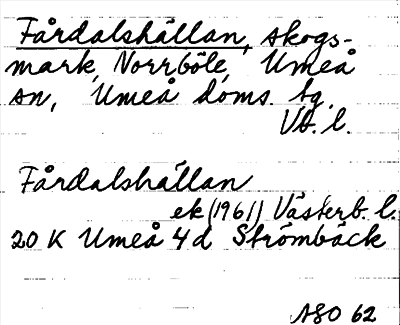 Fårdalshällan, skogs-
mark, Norrböle, Umeå
sn, Umeå doms. tg.
Vb. l.
Fårdalshällan
ek (1961) Västerb. l.
20 K Umeå 4d Strömbäck
ASO 62